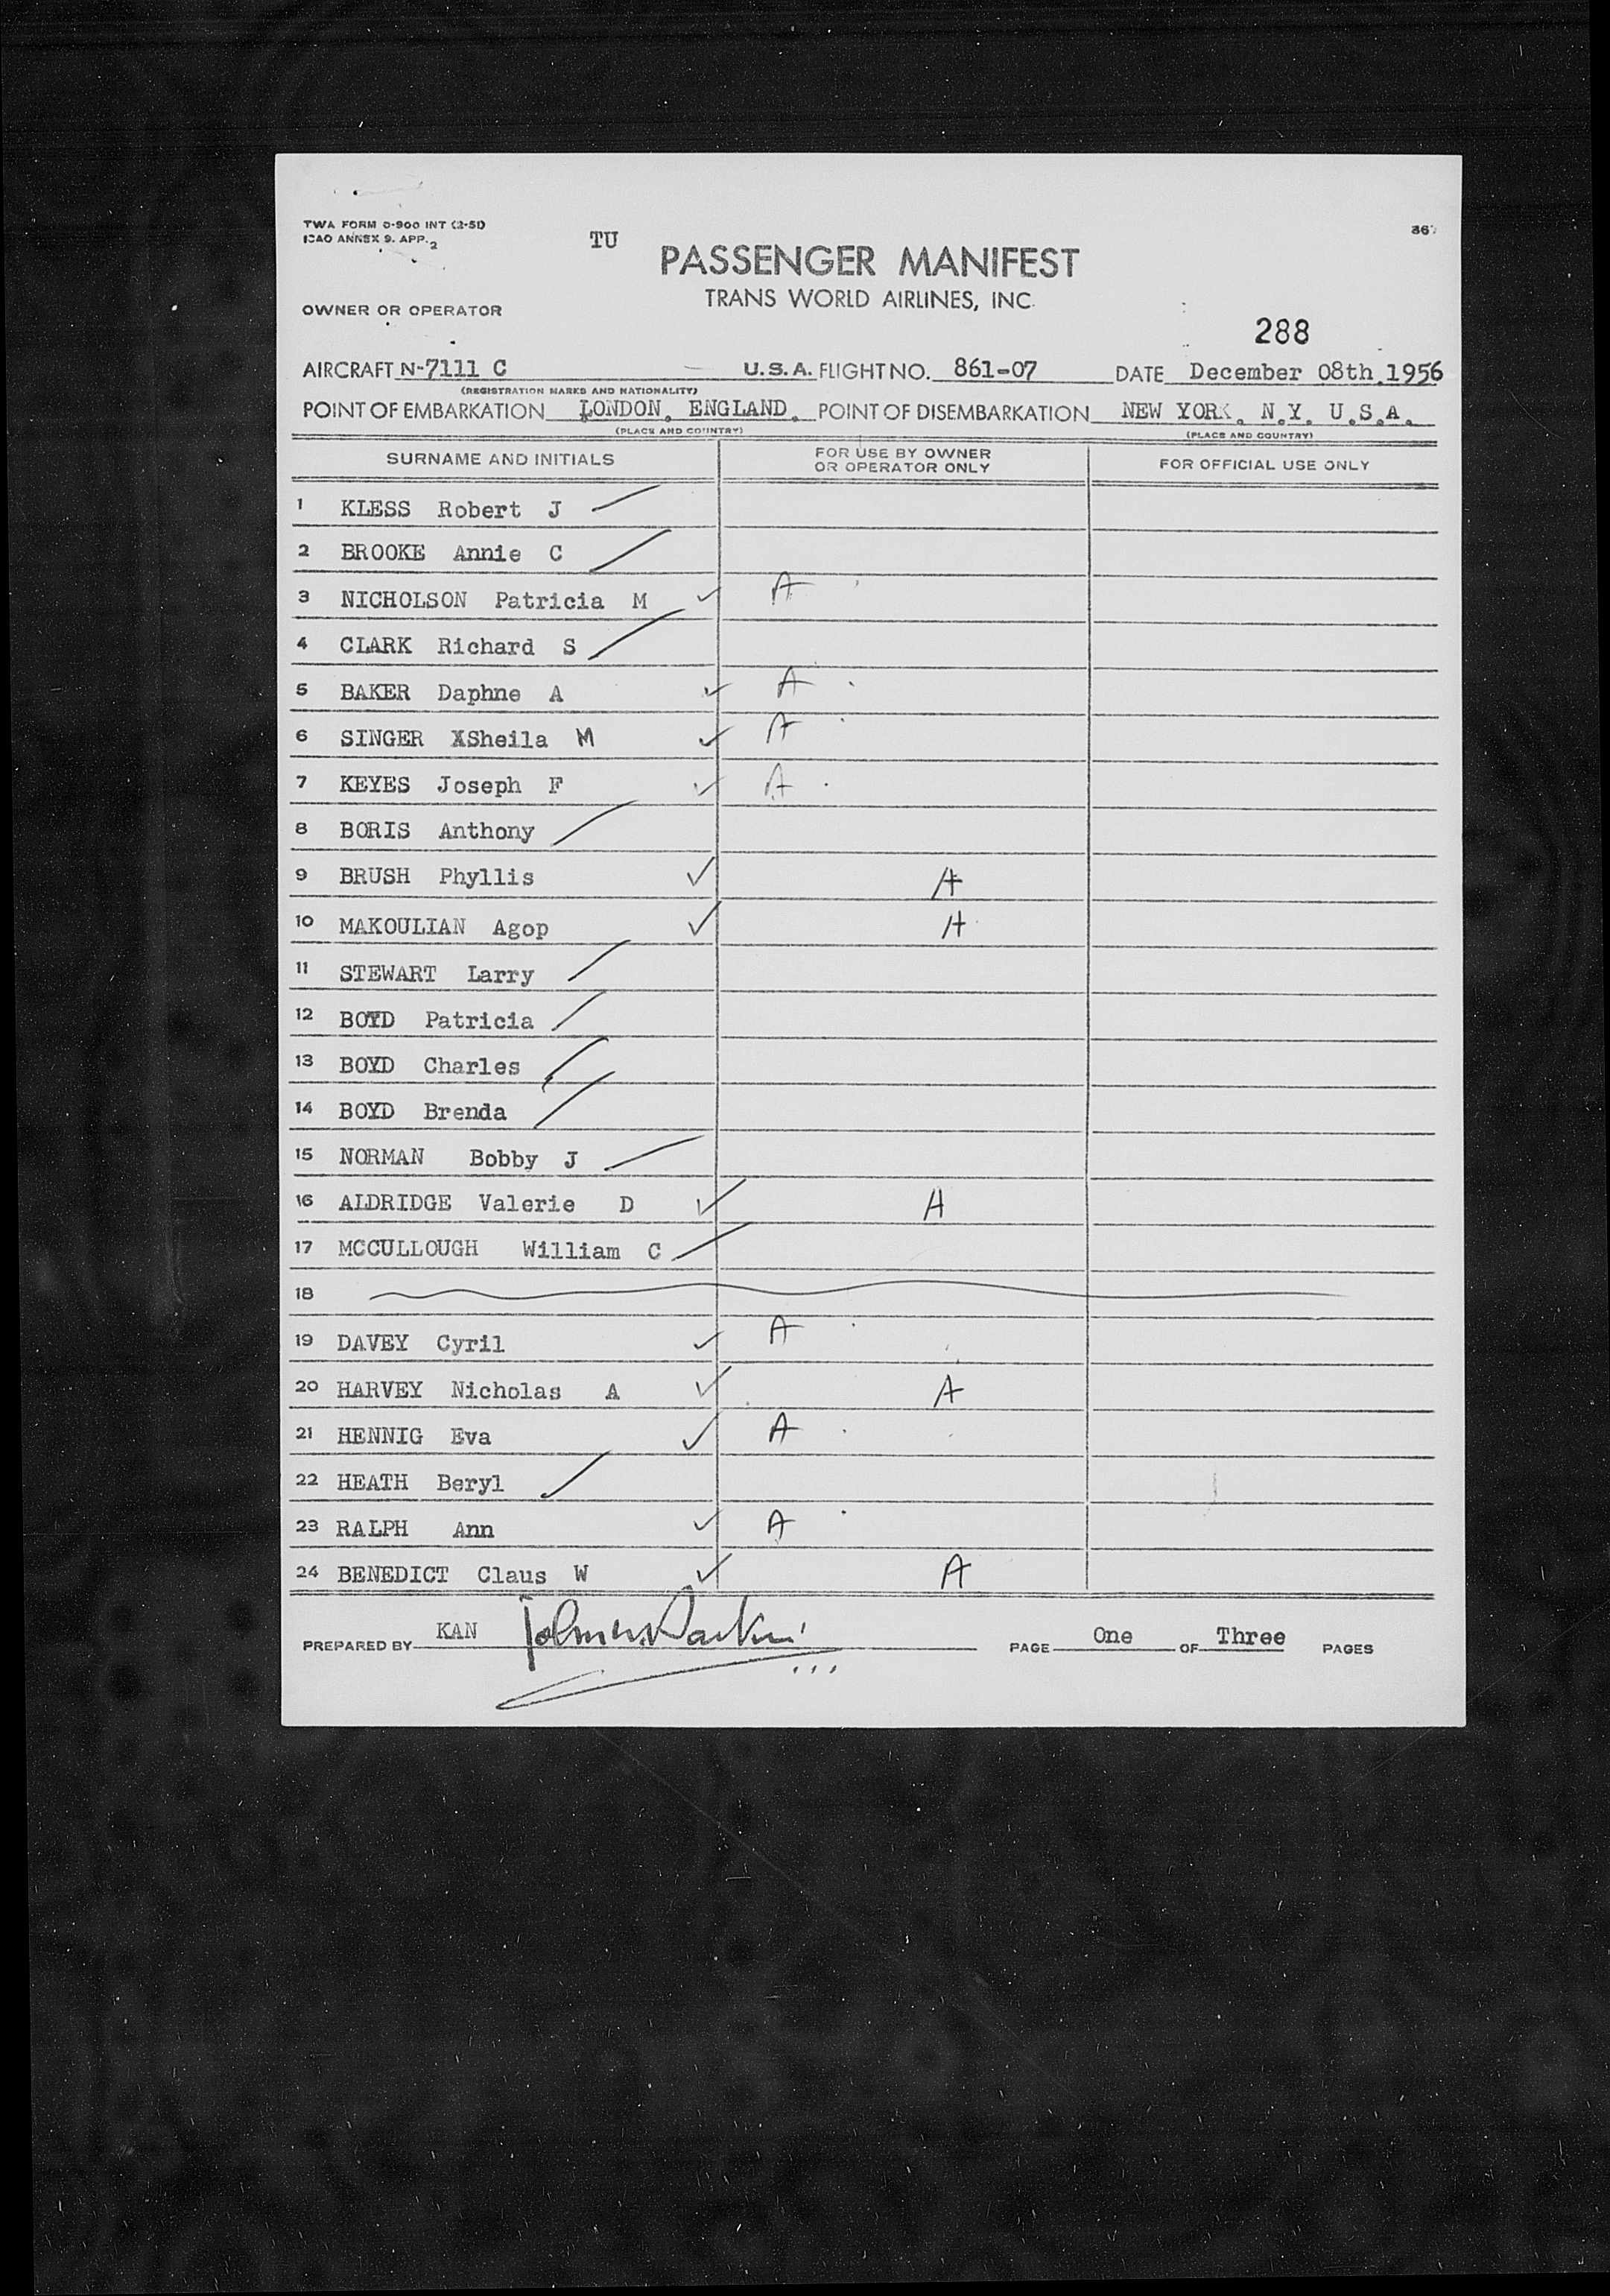 TWA FORM O-900 INT (2-51)
ICAO ANNEX 9. APP. 2
TU
PASSENGER MANIFEST
TRANS WORLD AIRLINES, INC.
OWNER OR OPERATOR
288
AIRCRAFT N-7111 C U.S.A. FLIGHT NO. 861-07 DATE December 08th 1956
(REGISTRATION MARKS AND NATIONALITY)
POINT OF EMBARKATION LONDON, ENGLAND. POINT OF DISEMBARKATION NEW YORK, N.Y. U.S.A.
(PLACE AND COUNTRY) (PLACE AND COUNTRY)
SURNAME AND INITIALS FOR USE BY OWNER OR OPERATOR ONLY FOR OFFICIAL USE ONLY
1 KLESS Robert J
2 BROOKE Annie C
3 NICHOLSON Patricia M ✓ A
4 CLARK Richard S
5 BAKER Daphne A ✓ A
6 SINGER XSheila M ✓ A
7 KEYES Joseph F ✓ A
8 BORIS Anthony
9 BRUSH Phyllis ✓ A
10 MAKOULIAN Agop ✓ A
11 STEWART Larry
12 BOYD Patricia
13 BOYD Charles
14 BOYD Brenda
15 NORMAN Bobby J
16 ALDRIDGE Valerie D ✓ A
17 MCCULLOUGH William C
18
19 DAVEY Cyril ✓ A
20 HARVEY Nicholas A ✓ A
21 HENNIG Eva ✓ A
22 HEATH Beryl
23 RALPH Ann ✓ A
24 BENEDICT Claus W ✓ A
PREPARED BY KAN PAGE One OF Three PAGES